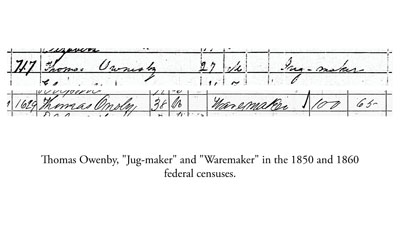 717 Thomas Ownsby 27 M Jug-maker
1629 Thomas Onsby 38 M Waremaker 100 65
Thomas Owenby, "Jug-maker" and "Waremaker" in the 1850 and 1860
federal censuses.